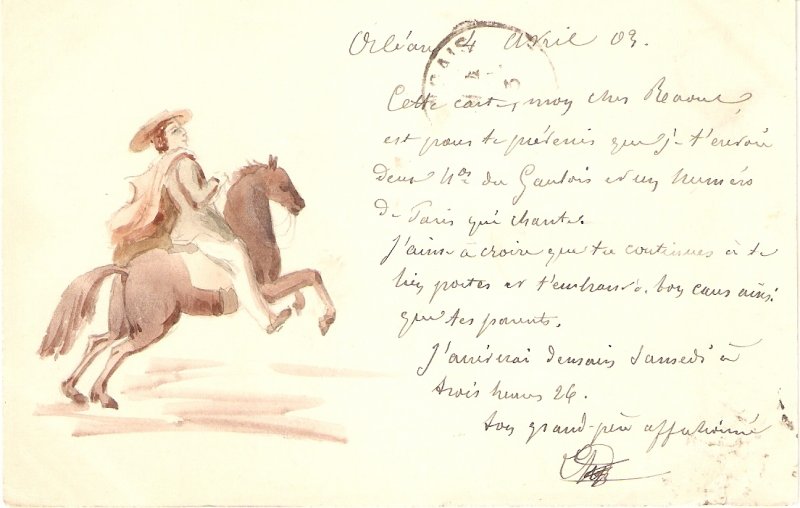 Orléans 4 Avril 03.
Cette carte, mon cher Raoul,
est pour te prévenir que je t'envoie
deux Nos du Gaulois et un numéro
de Paris qui chante.
J'aime à croire que tu continues à te
bien porter et t'embrasse. bon ainsi
que tes parents.
J'arriverai demain Samedi à
trois heures 26.
ton grand-père affectionné